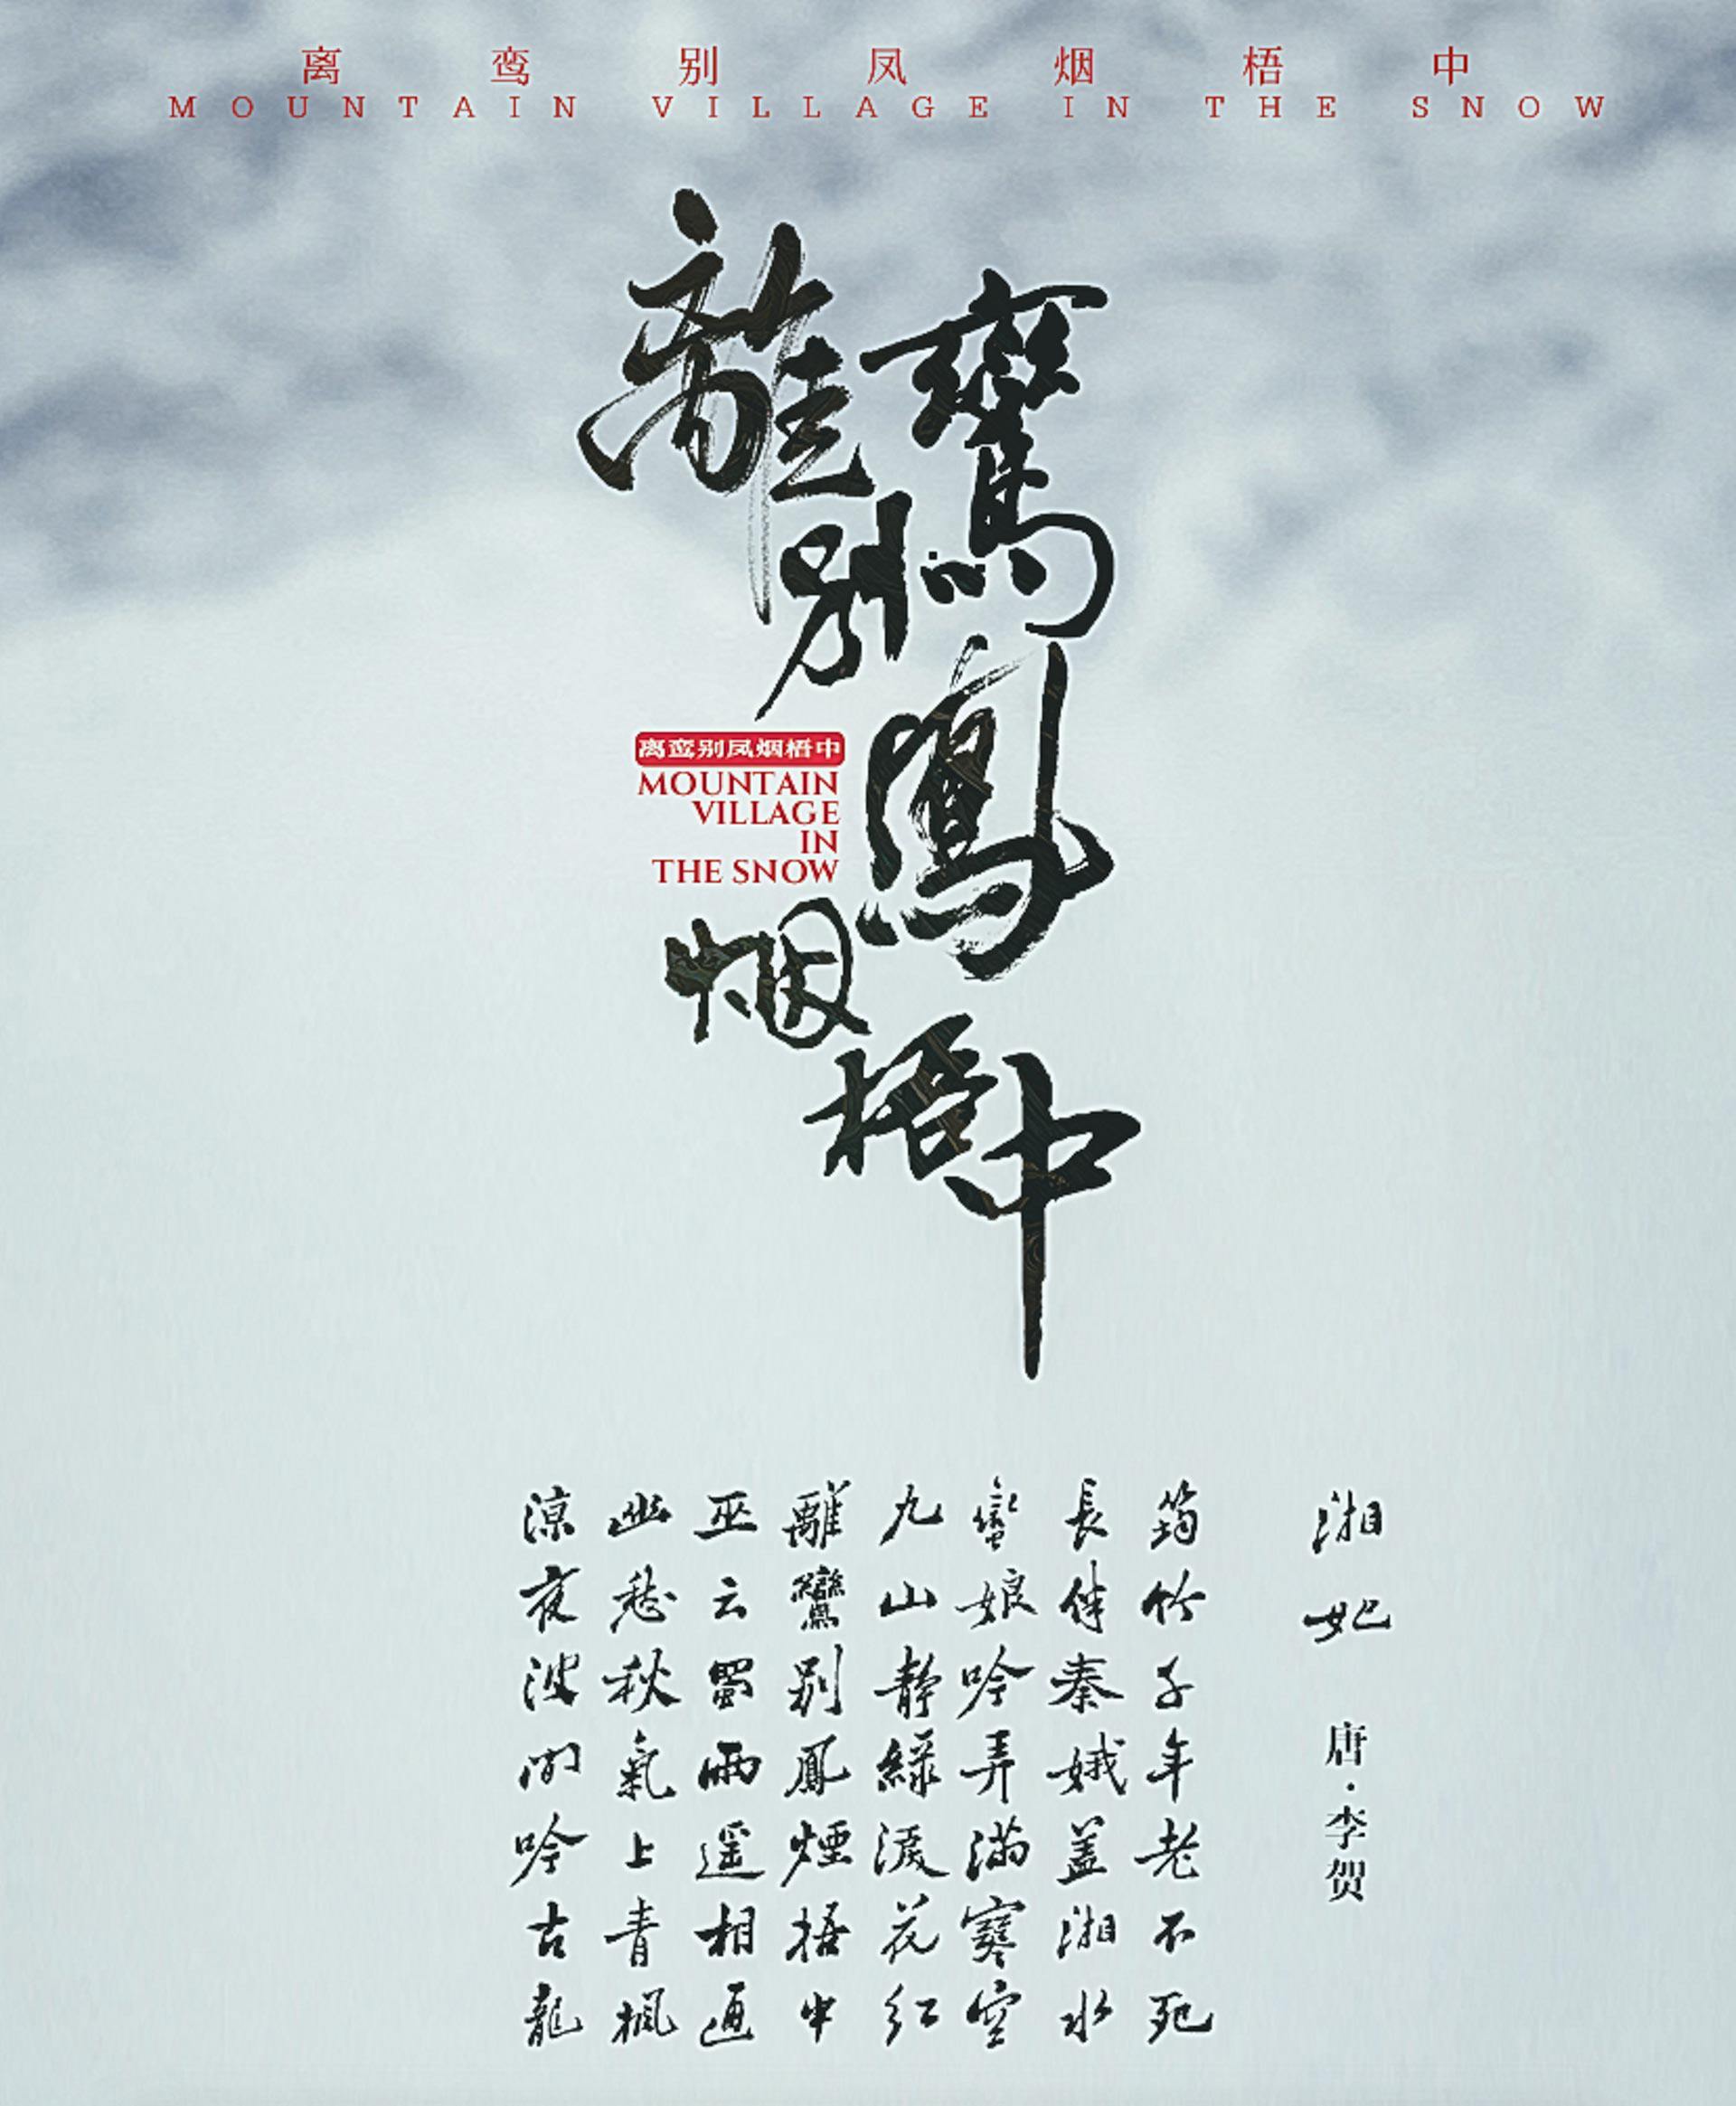 离鸾别凤烟梧中
MOUNTAIN VILLAGE IN THE SNOW
離鸞别鳳烟梧中
离鸾别凤烟梧中
MOUNTAIN
VILLAGE
IN
THE SNOW
湘妃 唐·李贺
筠竹千年老不死
長伴秦娥盖湘水
蠻娘吟弄满寒空
九山静綠淚花红
離鸞别鳳煙梧中
巫云蜀雨遥相通
幽愁秋氣上青楓
凉夜波间吟古龍